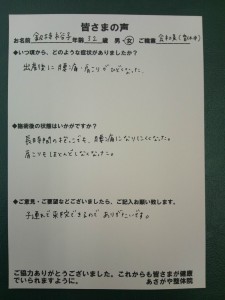 皆さまの声
お名前 裕子 年齢 32 歳 男・女 ご職業 会社員(育休中)
◆いつ頃から、どのような症状がありましたか?
出産後に腰痛・肩こりがひどくなった。
◆施術後の状態はいかがですか?
長時間の抱っこでも、腰痛になりにくくなった。
肩こりもほとんどしなくなった。
◆ご意見・ご要望などございましたら、ご記入お願い致します。
子連れで来院できるのでありがたいです。
ご協力ありがとうございました。これからも皆さまが健康
でいられますように。 あさがや整体院